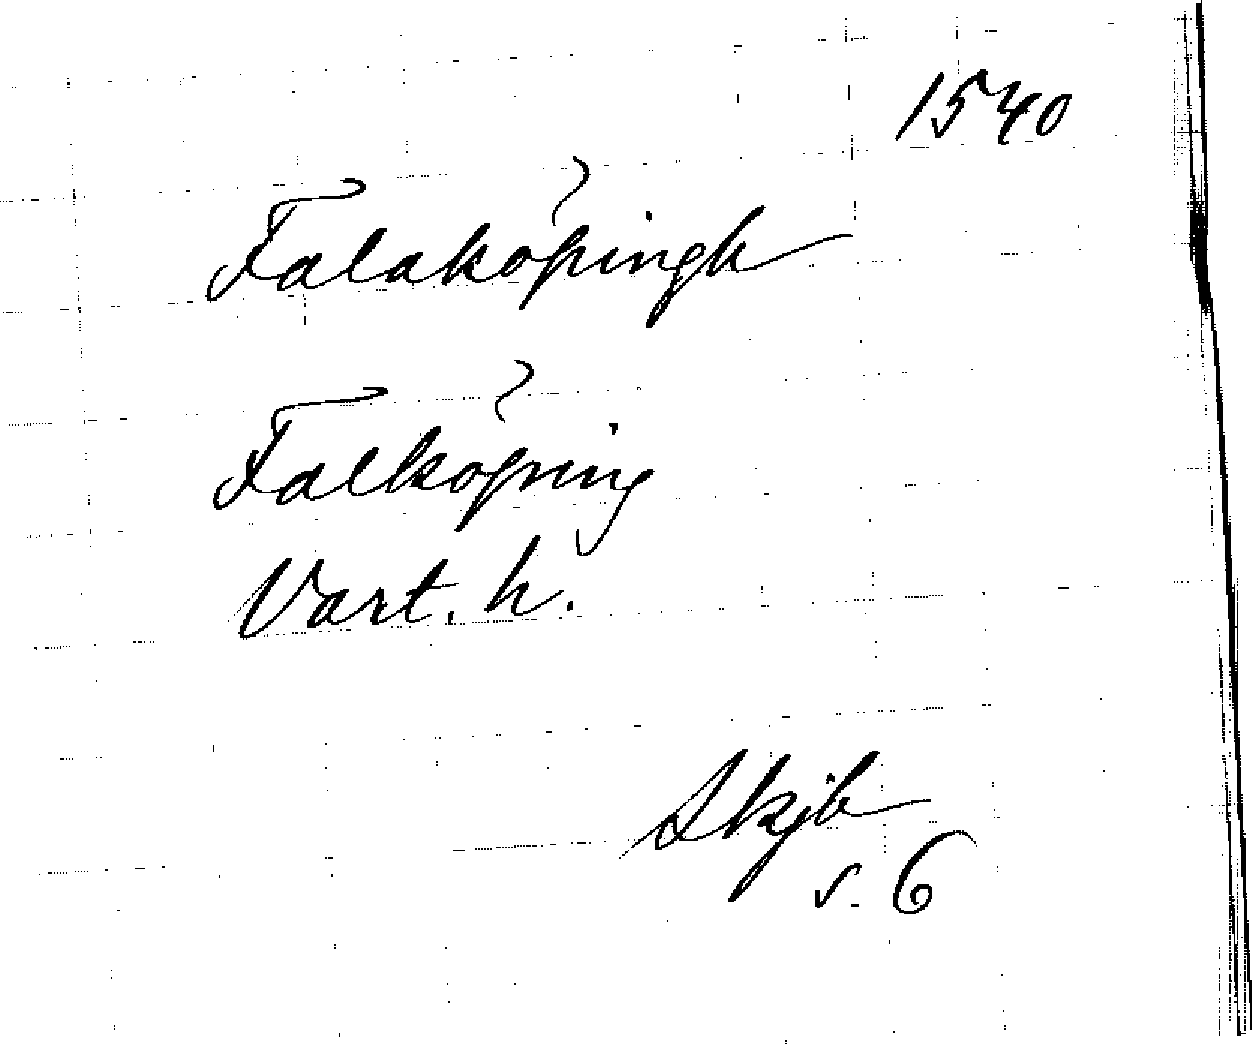 1540
Falaköpingh
Falköping
Vart. h.
Skjb
s. 6